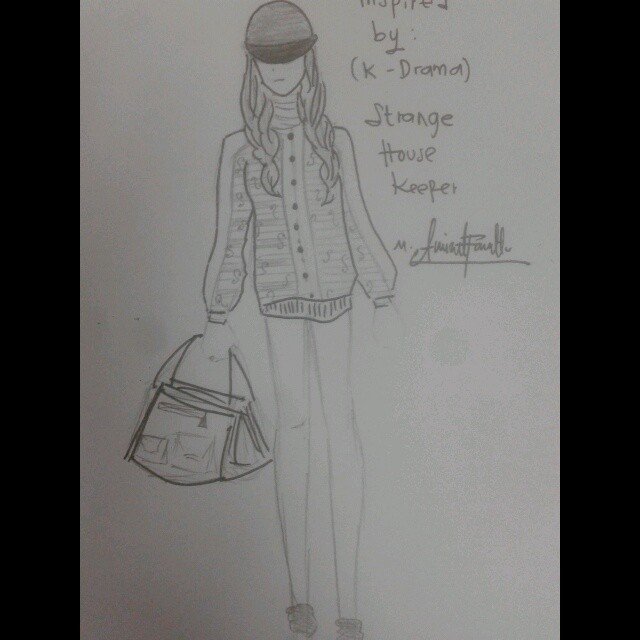 Inspired
by:
(K-Drama)
Strange
House
Keeper